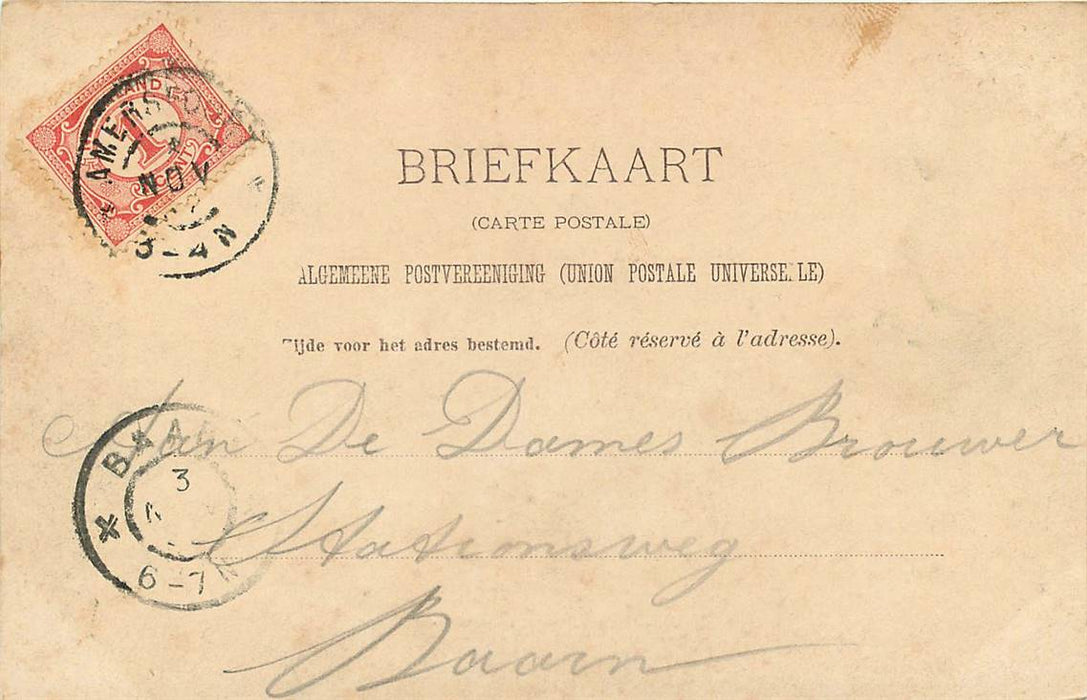 AMERSFO
NOV
3-4 N
1
CENT
BRIEFKAART
(CARTE POSTALE)
ALGEMEENE POSTVEREENIGING (UNION POSTALE UNIVERSELLE)
Zijde voor het adres bestemd. (Côté réservé à l'adresse).
Aan De Dames Brouwer
Stationsweg
Baarn
BAA
3
N
6-7 N